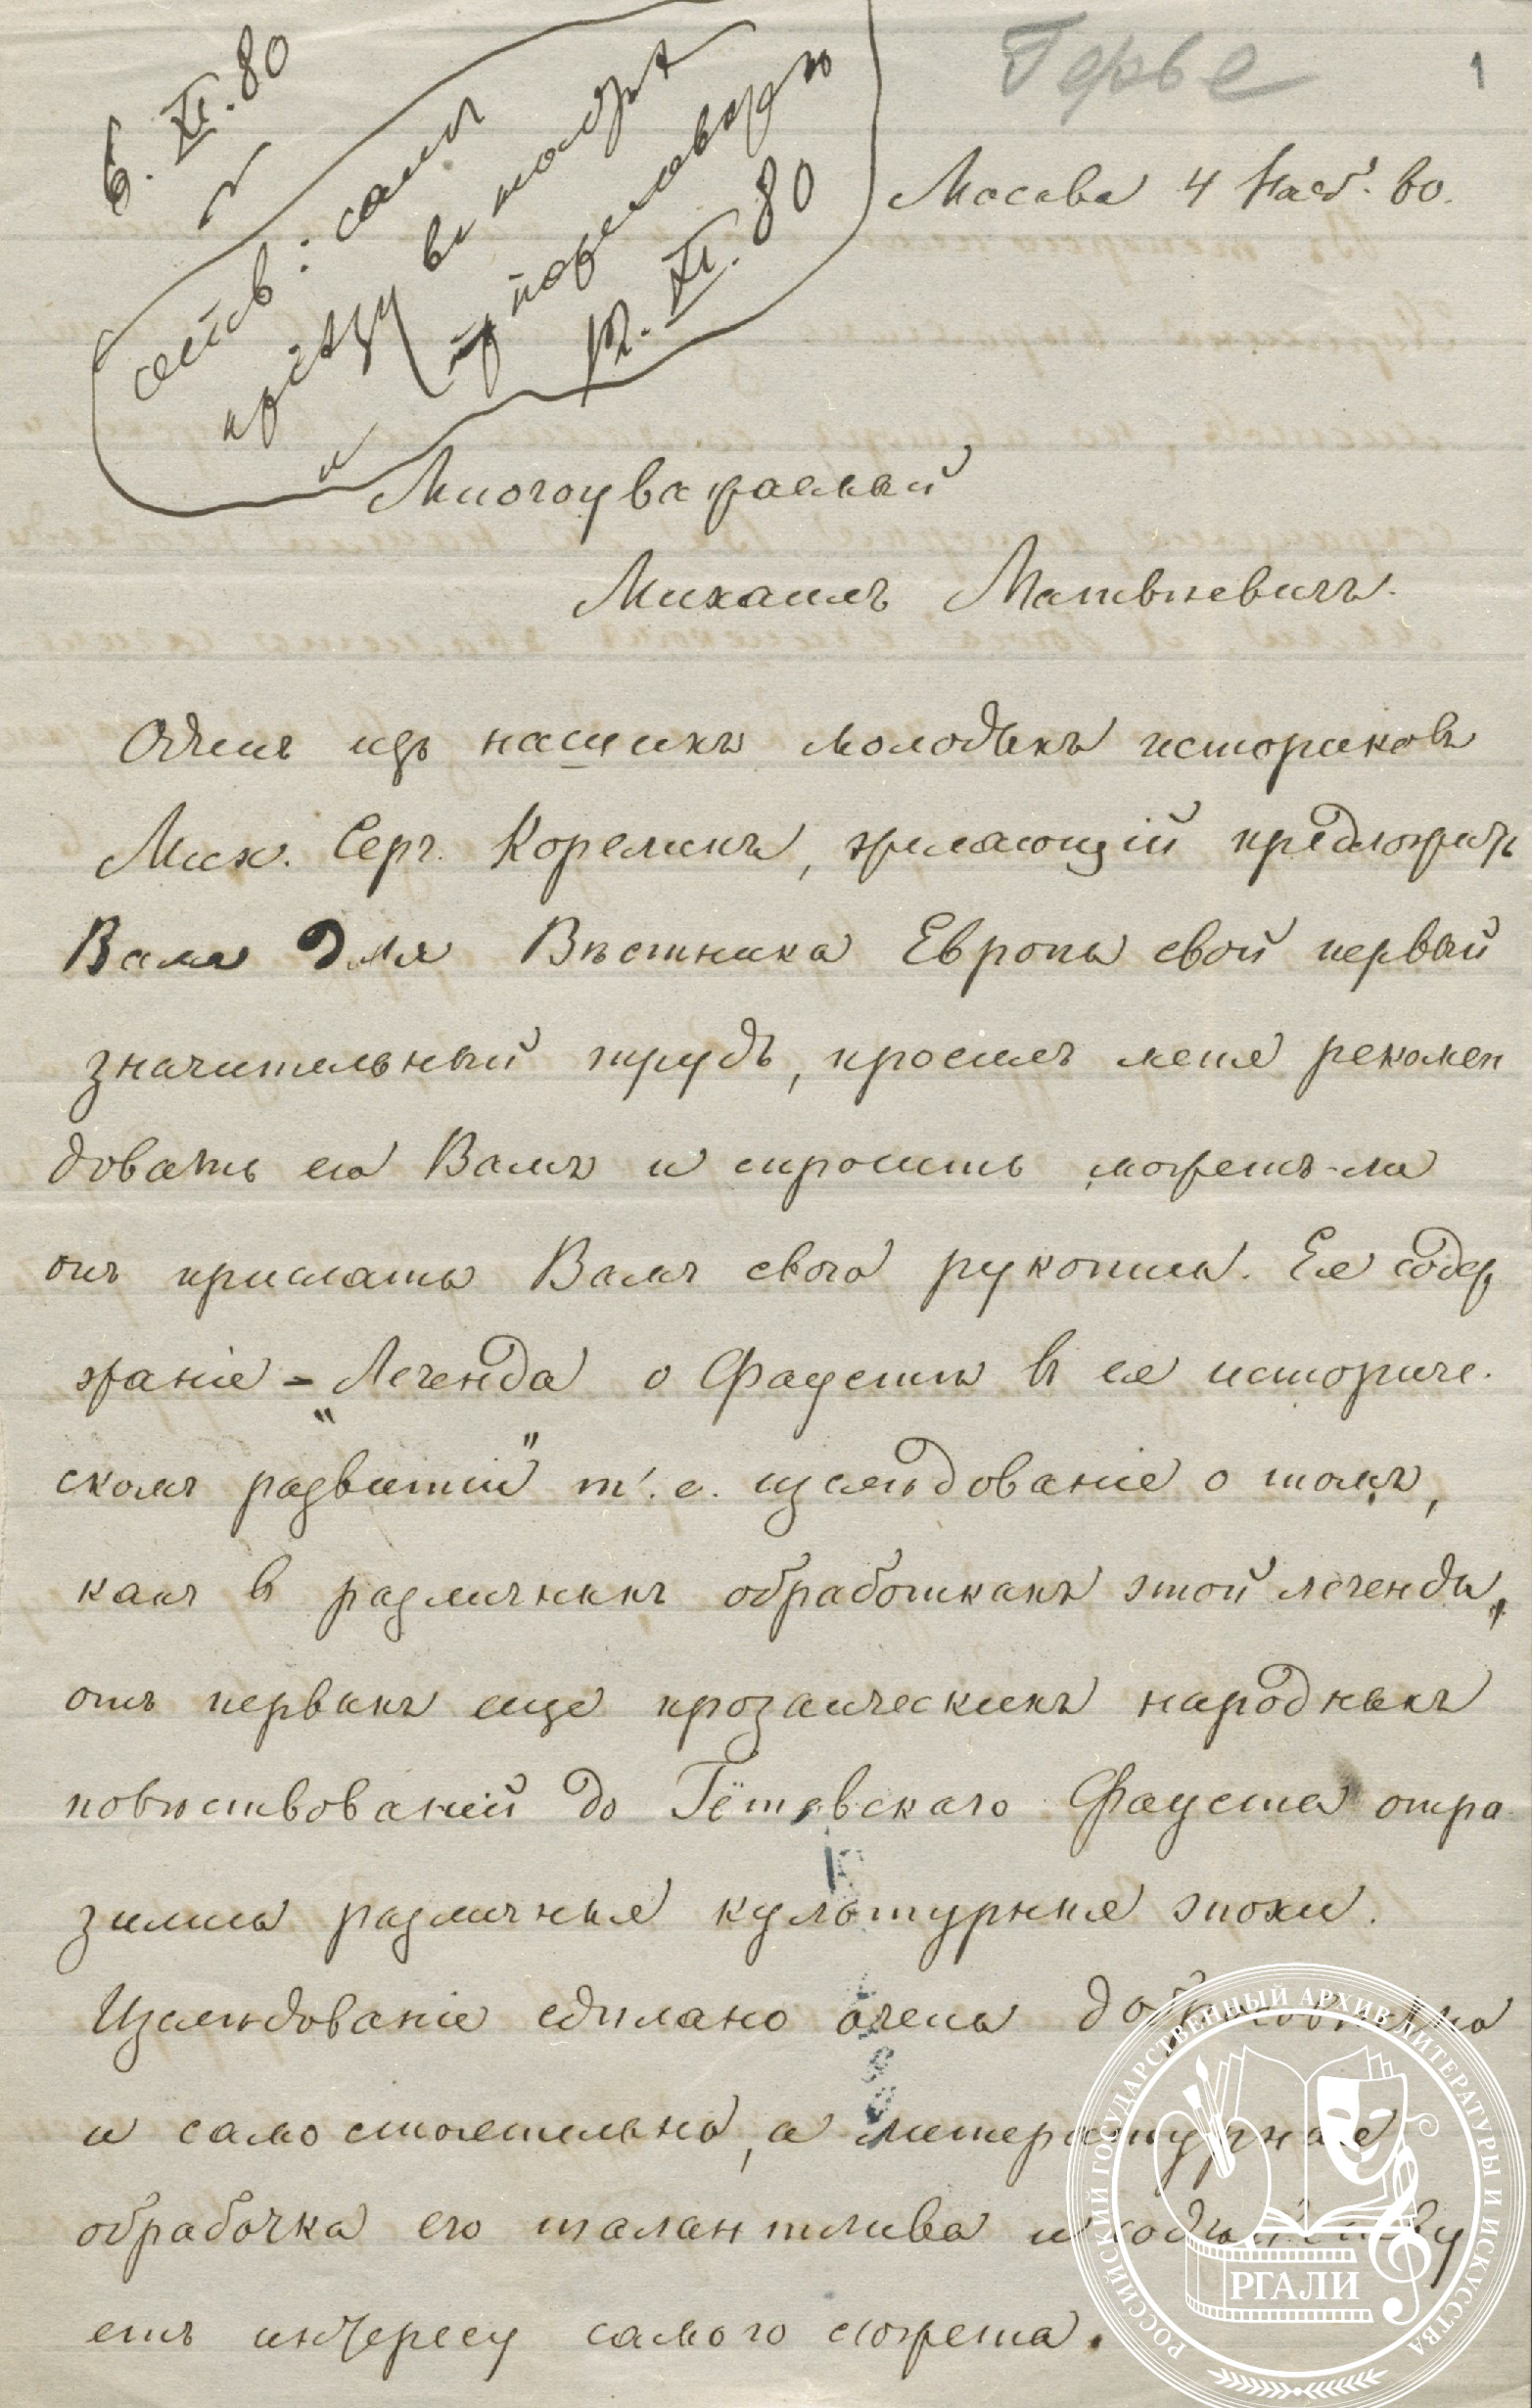 Герье
1
6. XI. 80
ответ: самъ
и
12. XI. 80
Москва 4 Нояб. 80.
Многоуважаемый
Михаилъ Матвѣевичъ.
Одинъ изъ нашихъ молодыхъ историковъ
Мих. Серг. Корелинъ, желающій предложить
Вамъ для Вѣстника Европы свой первый
значительный трудъ, просилъ меня рекомен
довать его Вамъ и спросить можетъ-ли
онъ прислать Вамъ свою рукопись. Ея содер
жаніе - „Легенда о Фаустѣ въ ея историче-
скомъ развитіи" т. е. изслѣдованіе о томъ,
какъ въ различныхъ обработкахъ этой легенды,
отъ первыхъ еще прозаическихъ народныхъ
повѣствованій до Гётевскаго Фауста отра
зились различныя культурныя эпохи.
Изслѣдованіе сдѣлано очень добросовѣстно
и самостоятельно, а литературная
обработка его талантлива и соотвѣтству
етъ интересу самого сюжета.
РОССИЙСКИЙ ГОСУДАРСТВЕННЫЙ АРХИВ ЛИТЕРАТУРЫ И ИСКУССТВА
РГАЛИ